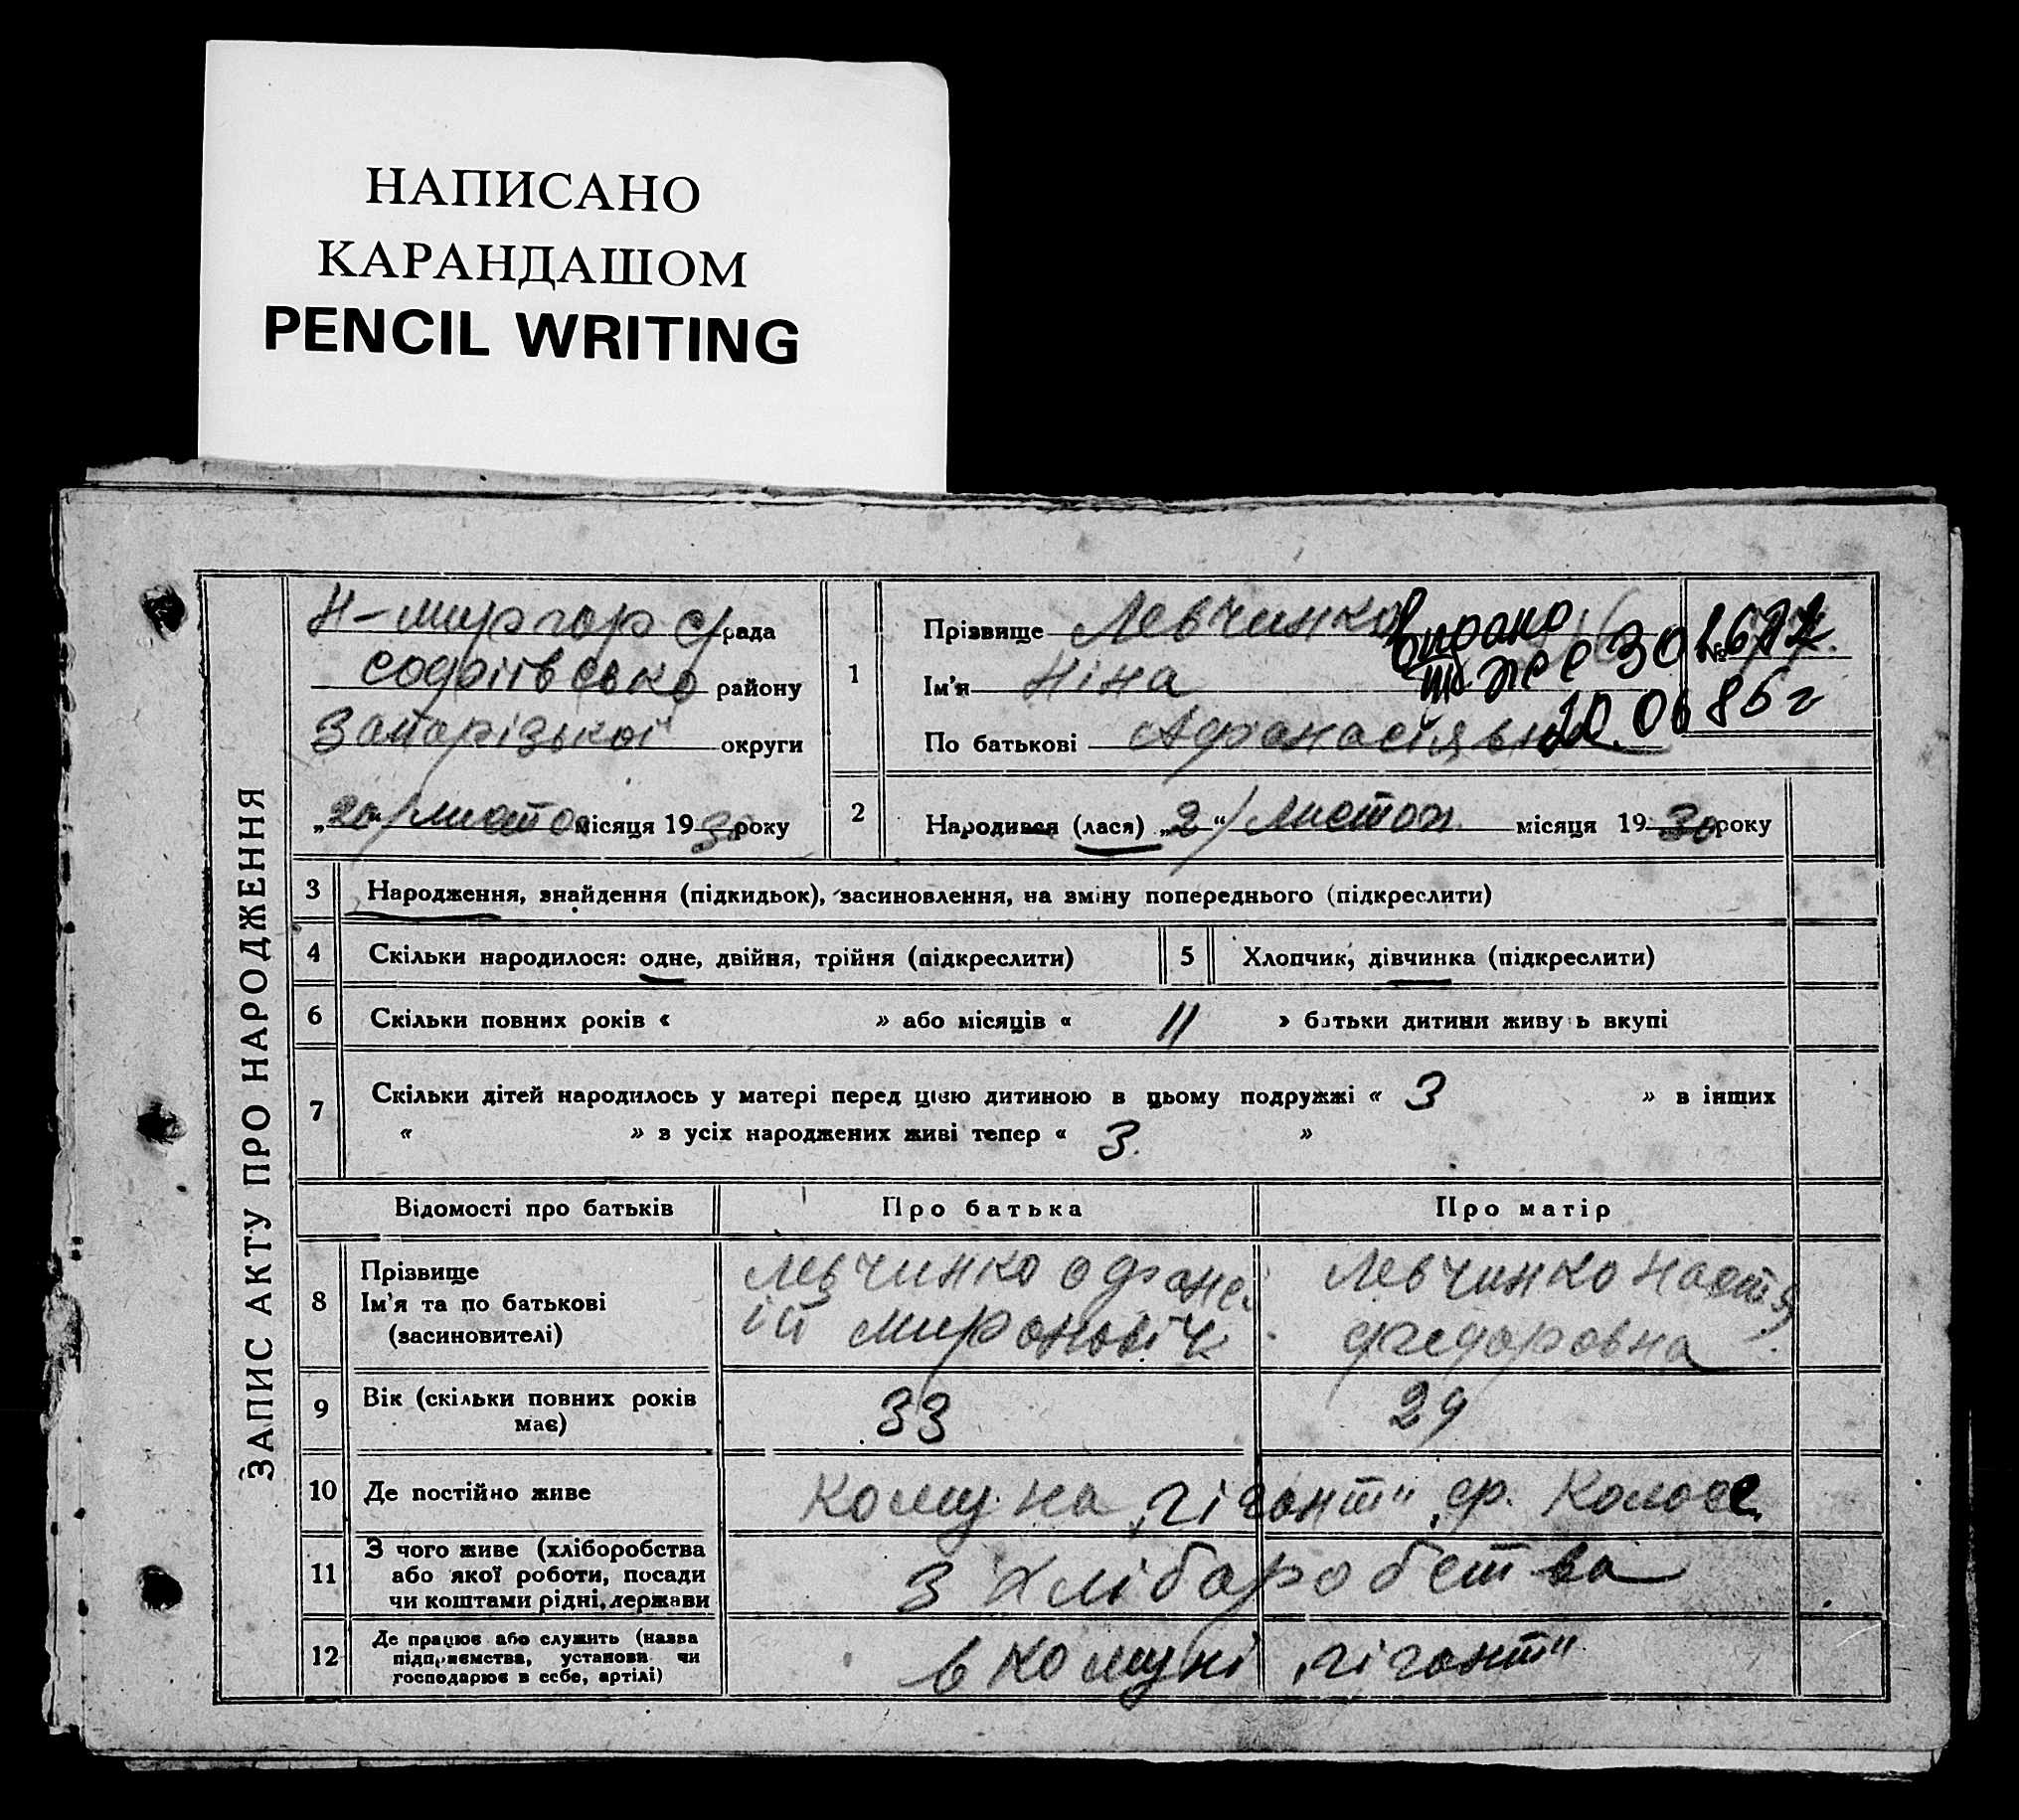 НАПИСАНО
КАРАНДАШОМ
PENCIL WRITING
ЗАПИС АКТУ ПРО НАРОДЖЕННЯ
Н-миргор с/рада
софіівсько району
Запорізької округи
„20“/листо місяця 1930 року
1
Прізвище Левчинко
Ім'я Ніна
По батькові Афонасіявна
№
30
20.06 86 г
2
Народився (лася) „2“/листоп місяця 1930 року
3 Народження, знайдення (підкидьок), засиновлення, на зміну попереднього (підкреслити)
4 Скільки народилося: одне, двійня, трійня (підкреслити)
5 Хлопчик, дівчинка (підкреслити)
6 Скільки повних років « » або місяців « 11 » батьки дитини живуть вкупі
7 Скільки дітей народилось у матері перед цією дитиною в цьому подружжі « 3 » в інших
« » з усіх народжених живі тепер « 3. »
Відомості про батьків Про батька Про матір
8 Прізвище
Ім'я та по батькові
(засиновителі)
левчинко офонас
ій миронович
Левчинко настя
федоровна
9 Вік (скільки повних років
має)
33
29
10 Де постійно живе
комуна „гігонт“ ср. Колосс
11 З чого живе (хліборобства
або якої роботи, посади
чи коштами рідні, держави
З хліборобства
12 Де працює або служить (назва
підприємства, установи чи
господарює в себе, артілі)
в комуні „гігонт“